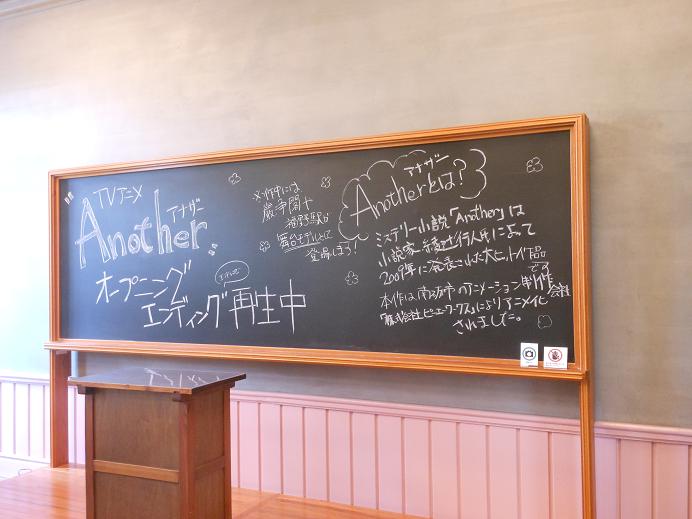 TVアニメ
アナザー
"Another"
オープニング
エンディング再生中
※作中には
厳浄閣や
福野駅が
舞台モデルとして
登場します!
アナザー
Anotherとは?
ミステリー小説「Another」は
小説家・綾辻行人氏によって
2009年に発表された大ヒット作品
です
本作は南砺市のアニメーション制作会社
「株式会社ピーエーワークス」によりアニメ化
されました。